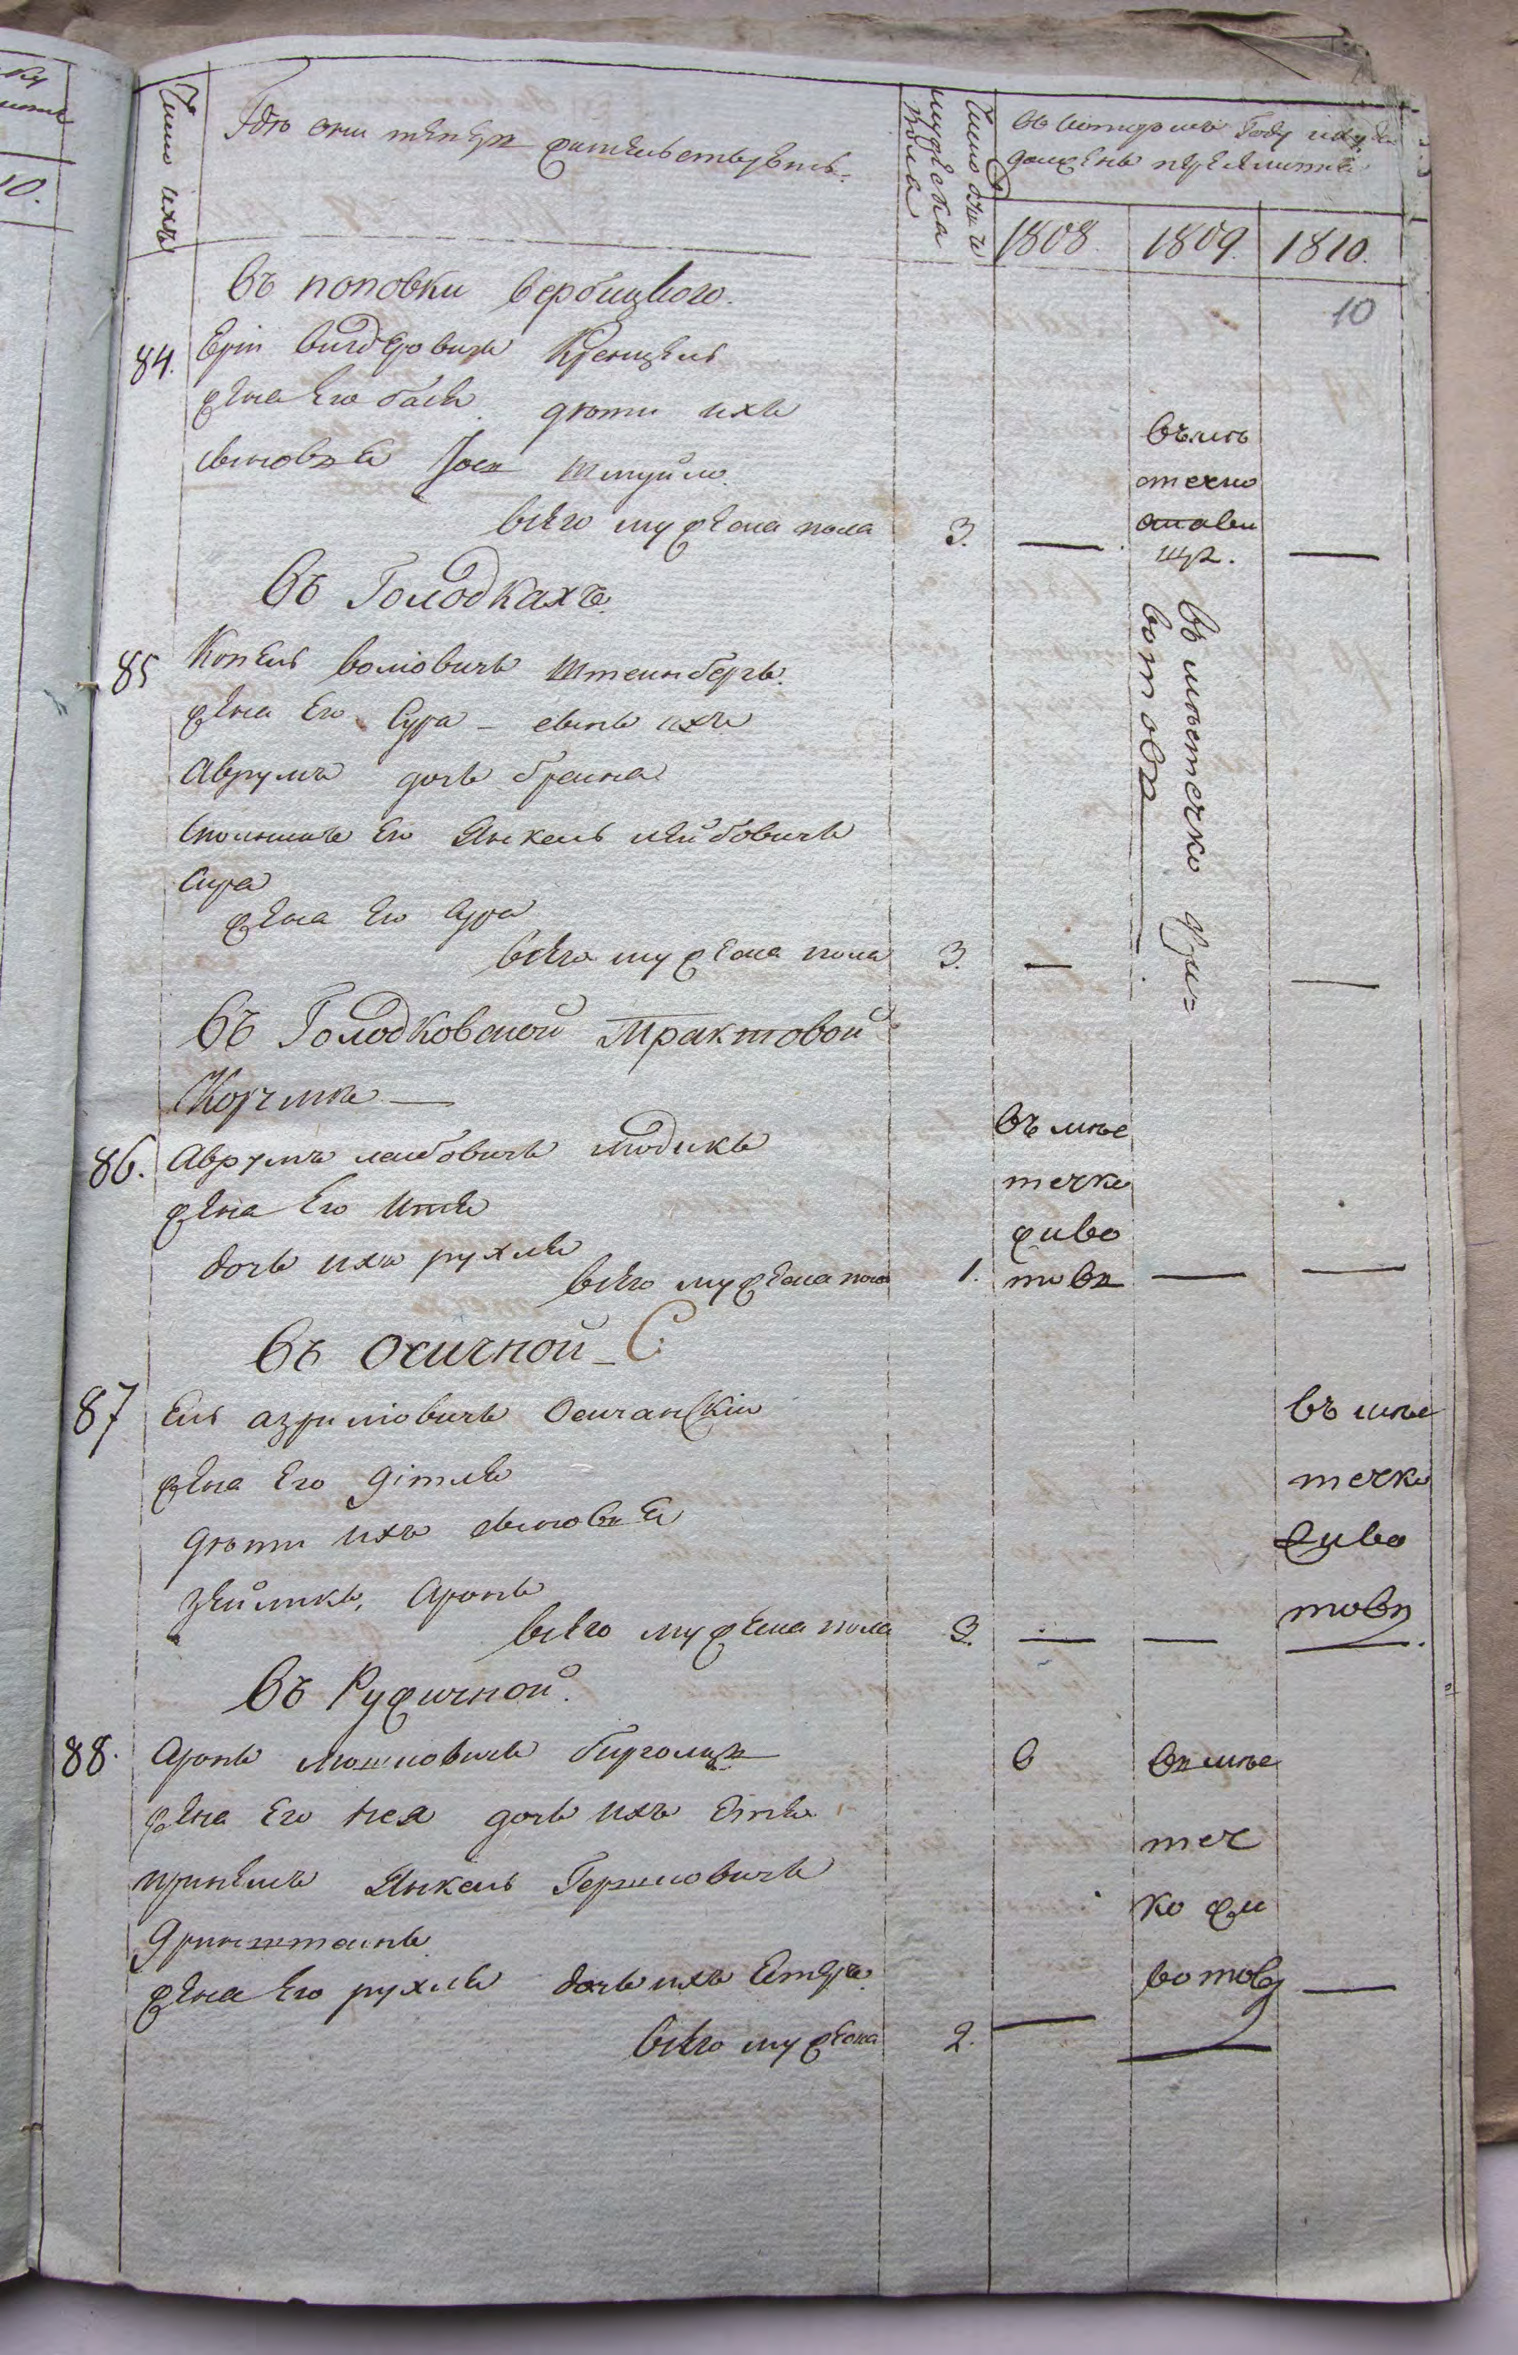 Число ихъ
Где они теперь жительствуютъ.
Число душъ мужеска пола
въ котором Году и куда
должены переселится
1808. 1809. 1810.
10
10.
въ поповки вербицкого.
84. Ерш вигдеровичъ Креницель
жена Его бася дѣти ихъ
сыновья Іось шмуйло
всего мужеска пола 3. —
въ мѣ
стечко
стави
щи. —
въ Голодкахъ.
85 Копель воліовичъ Штеинбергъ.
жена Его Сура – сынъ ихъ
Аврумъ дочь браина
Спольникъ Его Янкель лейбовичъ
Сира
жена Его Сура
всего мужеска пола 3. —
въ мѣстечко Жи=
вотовъ —
въ Голодковской трактовой
Корчмѣ —
86. Аврумъ леибовичъ
жена Его Итя
дочь ихъ рухля
всего мужеска пола 1.
въ мѣс
течко
живо
товъ — —
въ Осичной С.
87 Ель азриліовичъ Осичанскій
жена Его дітля
дѣти ихъ сыновья
зеиликъ, Аронъ
всего мужеска пола 3. — —
въ мѣс
течко
Живо
товъ
въ Ружичной.
88. Аронъ мошковичъ
жена Его Нея дочь ихъ Етя
приемлъ Янкель Гершковичъ
Жена Его рухля дочь ихъ Естеръ
всего мужеска 2. —
въ мѣс
теч
ко жи
вотовъ —